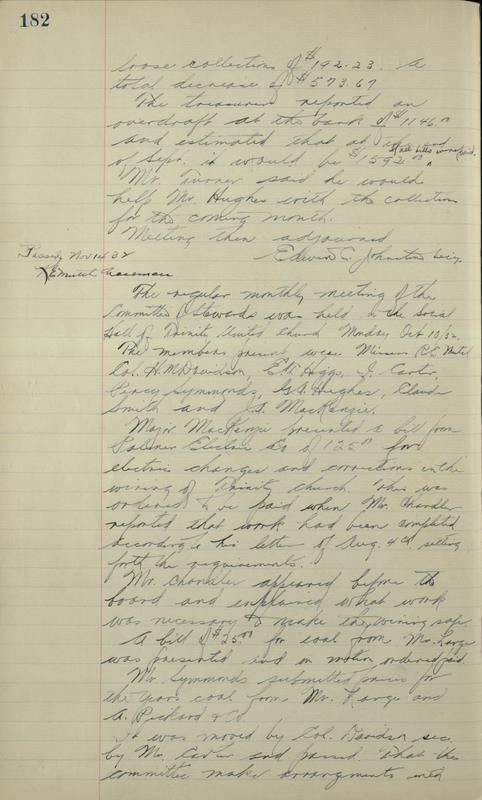 182
loose collections of $192.23. A
total decrease of $573.67
The treasurer reported an
overdraft at the bank of $1146.00
and estimated that at the end
of Sept. it would be $1592.00 if all bills were paid.
Mr. Turner said he would
help Mr. Hughes with the collection
for the coming month.
Meeting then adjourned
Edwin C. Johnston Secy.
Tuesday Nov 14 32
The regular monthly meeting of the
Committee of Stewards was held in the Social
Hall of Trinity United Church Monday Oct 10/32.
The members present were Messrs
Col. H. M. Davidson, E. W. Higgs, J. Carter,
Percy Symmonds, G. A. Hughes, Claude
Smith and J. A. MacKenzie.
Major MacKenzie presented a bill from
Palmer Electric Co of 125.00 for
electric changes and corrections in the
wiring of Trinity church. This was
ordered to be paid when Mr. Chandler
reported that work had been completed
according to his letter of Aug. 4th setting
forth the requirements.
Mr. Chandler appeared before the
board and explained what work
was necessary to make the wiring safe.
A bill of $25.00 for coal from Mr. Large
was presented and on motion ordered paid.
Mr. Symmonds submitted prices for
the years coal from Mr. Large and
A. Pickard & Co.
It was moved by Col. Davidson sec.
by Mr. Carter and passed. That the
committee make arrangments with